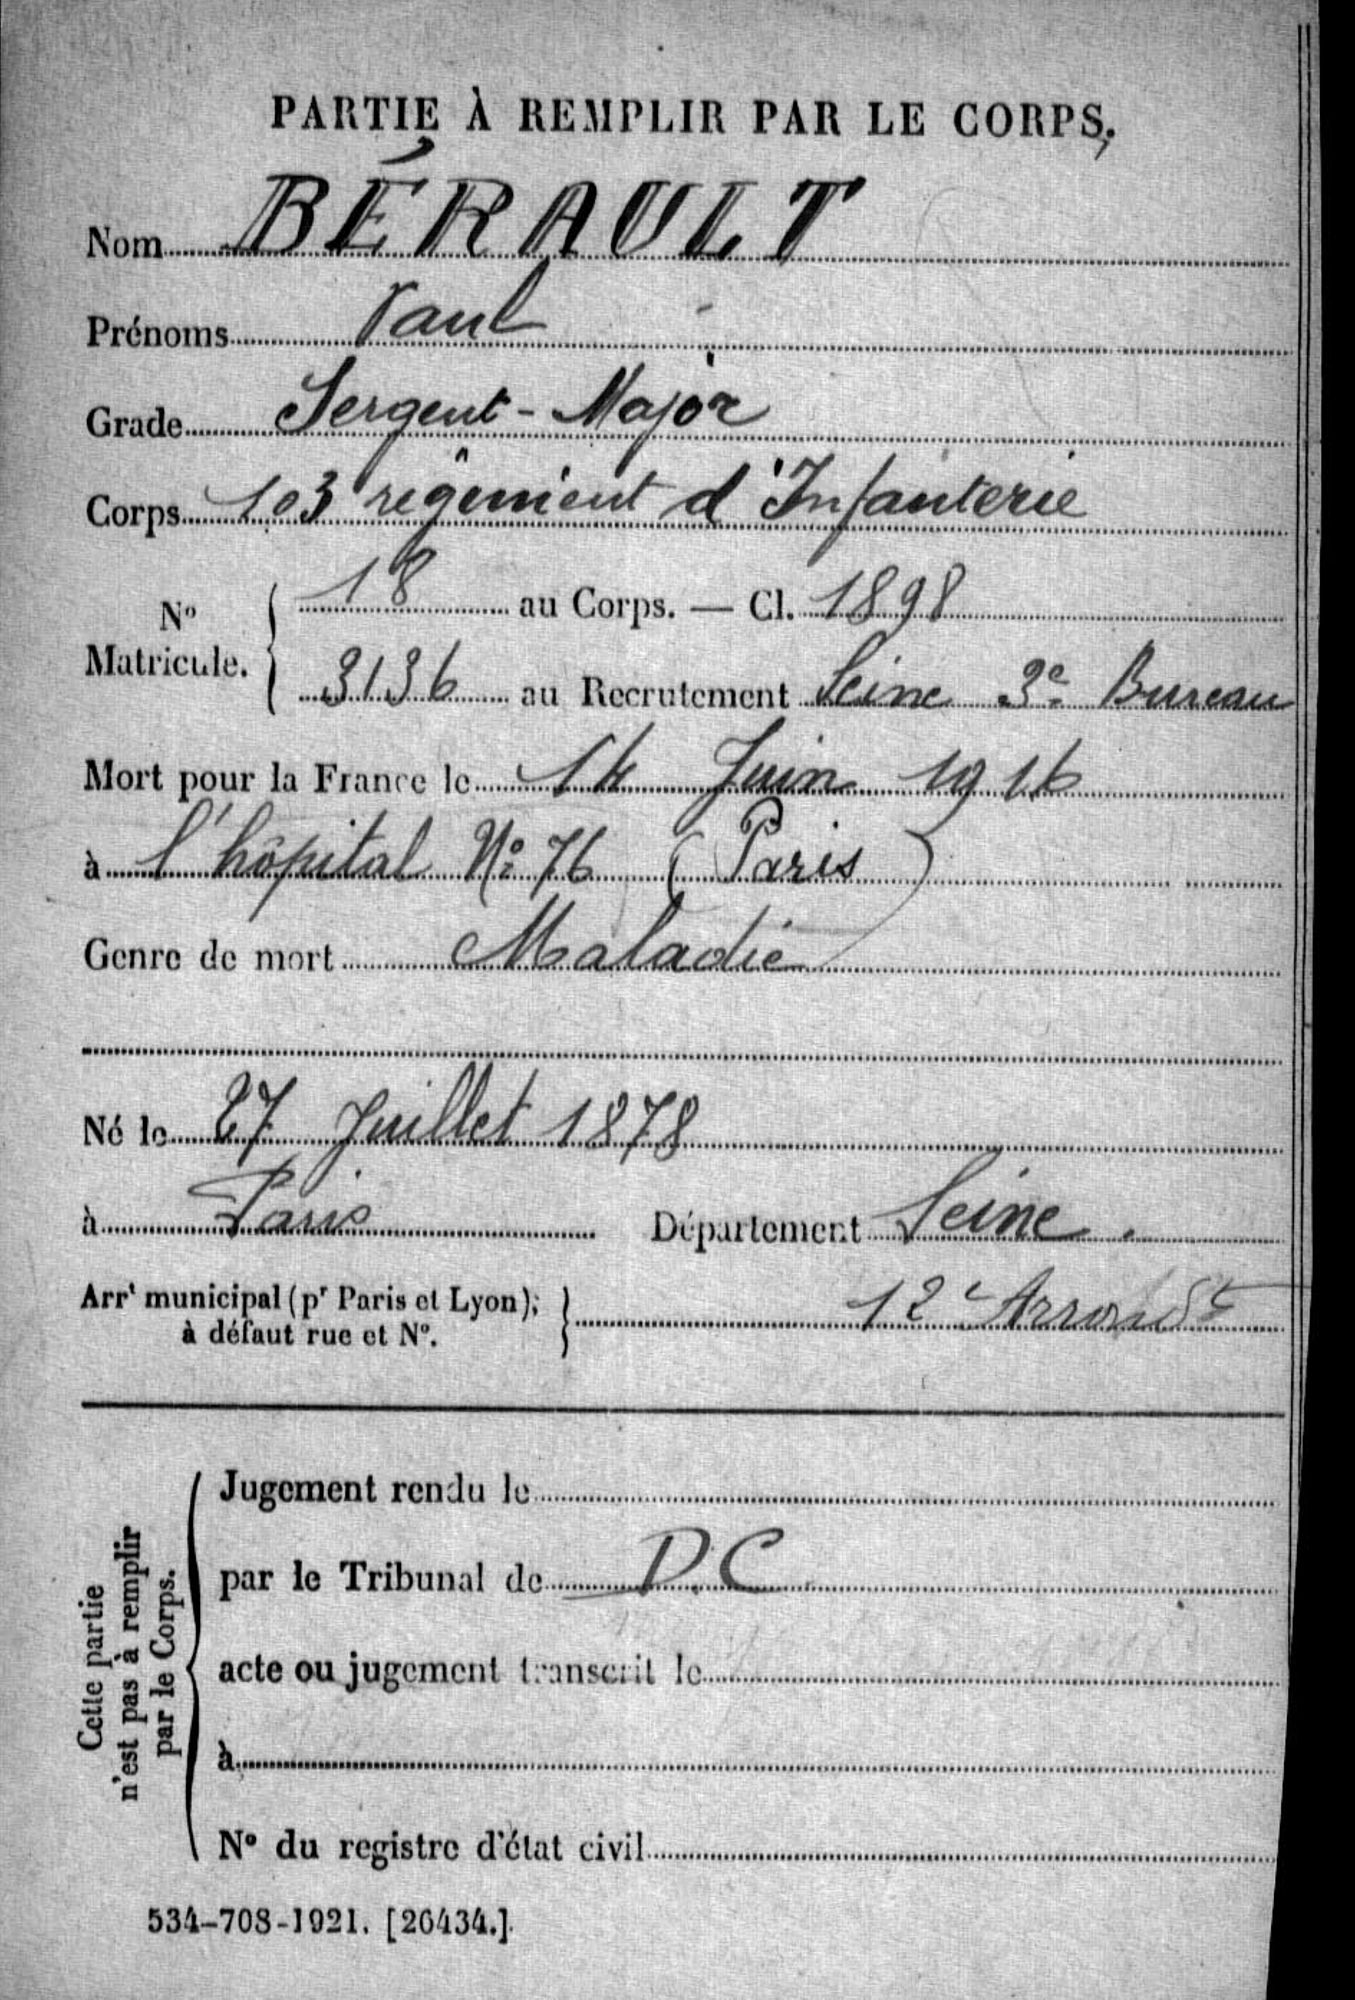 PARTIE À REMPLIR PAR LE CORPS.
Nom BÉRAULT
Prénoms Paul
Grade Sergent-Major
Corps 103 régiment d'Infanterie
N° Matricule. { 18 au Corps. — Cl. 1898
3136 au Recrutement Seine 3e Bureau
Mort pour la France le 14 Juin 1916
à l'hôpital N° 76 (Paris)
Genre de mort Maladie
Né le 27 Juillet 1878
à Paris Département Seine.
Arrt municipal (pr Paris et Lyon); } 12e Arrondt
à défaut rue et N°.
Cette partie
n'est pas à remplir
par le Corps.
Jugement rendu le
par le Tribunal de D.C
acte ou jugement transcrit le
à
N° du registre d'état civil
534-708-1921. [26434.]